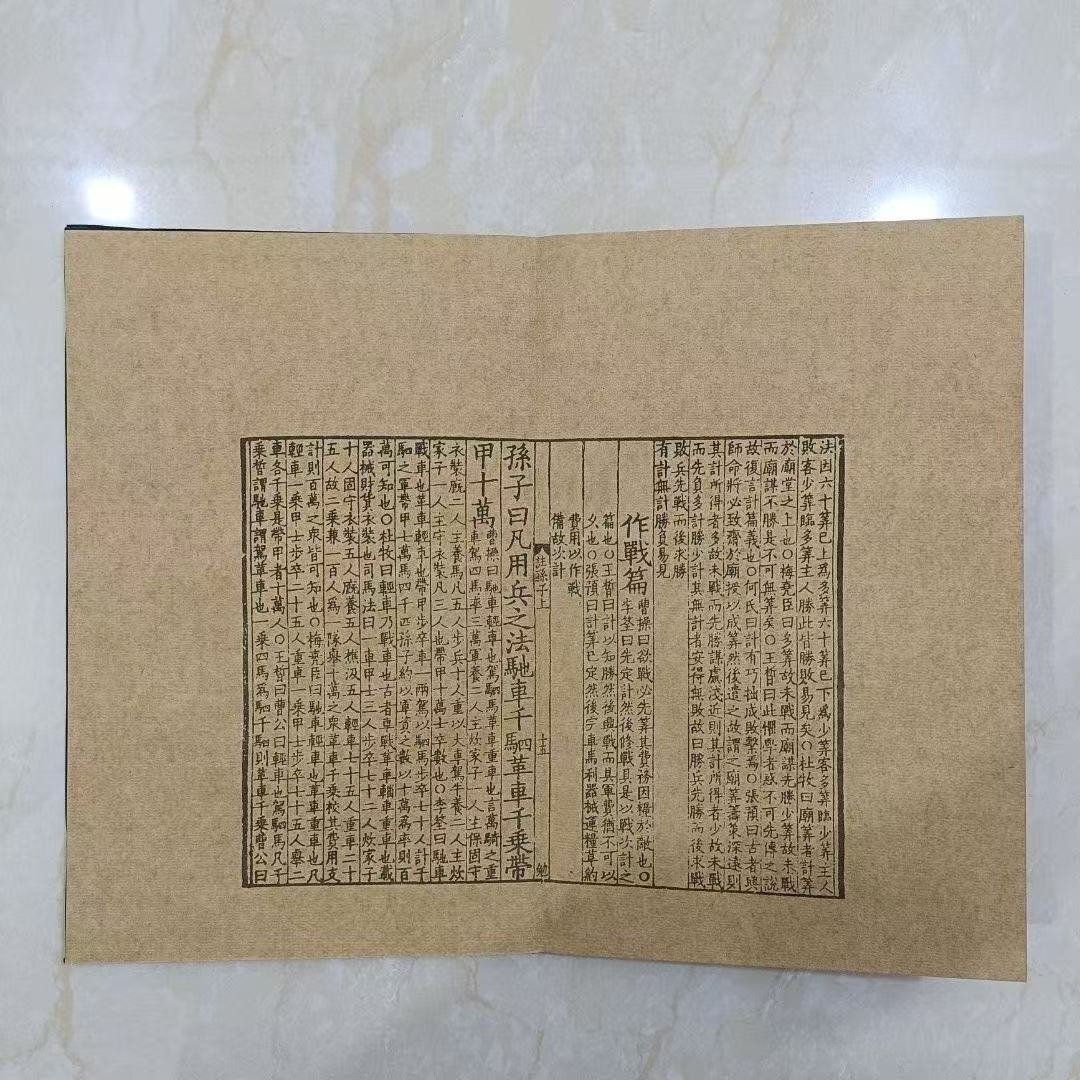 法因六十筭已上爲多筭六十筭已下爲少筭客多筭臨少筭主人
敗客少筭臨多筭主人勝此皆勝敗易見矣〇杜牧曰廟筭者計算
於廟堂之上也〇梅堯臣曰多筭故未戰而廟謀先勝少筭故未戰
而廟謀不勝是不可無筭矣〇王晳曰此懼學者惑不可先傳之說
故復言計篇義也〇何氏曰計有巧拙成敗繫焉〇張預曰古者興
師命將必致齋於廟授以成筭然後遣之故謂之廟筭籌策深遠則
其計所得者多故未戰而先勝謀慮淺近則其計所得者少故未戰
而先負多計勝少計其無計者安得無敗故曰勝兵先勝而後求戰
敗兵先戰而後求勝
有計無計勝負易見
作戰篇
曹操曰欲戰必先筭其費務因糧於敵也〇
李筌曰先定計然後修戰具是以戰次計之
篇也〇王晳曰計以知勝然後興戰而具軍費猶不可以
久也〇張預曰計算已定然後完車馬利器械運糧草約
費用以作戰
備故次計
註孫子上
十五
勉
孫子曰凡用兵之法馳車千駟革車千乘帶
甲十萬
曹操曰馳車輕車也駕駟馬革車重車也言萬騎之重
車駕四馬率三萬軍養二人主炊家子一人主保固守
衣裝廐二人主養馬凡五人步兵十人重以大車駕牛養二人主炊
家子一人主守衣裝凡三人也帶甲十萬士卒數也〇李筌曰馳車
戰車也革車輕車也帶甲步卒車一兩駕以駟馬步卒七十人計千
駟之軍帶甲七萬馬四千匹孫子約以軍資之數以十萬爲率則百
萬可知也〇杜牧曰輕車乃戰車也古者車戰革車輜車重車也載
器械財貨衣裝也司馬法曰一車甲士三人步卒七十二人炊家子
十人固守衣裝五人廐養五人樵汲五人輕車七十五人重車二十
五人故二乘兼一百人爲一隊舉十萬之衆革車千乘校其費用支
計則百萬之衆皆可知也〇梅堯臣曰馳車輕車也革車重車也凡
輕車一乘甲士步卒二十五人重車一乘甲士步卒七十五人舉二
車各千乘是帶甲者十萬人〇王晳曰曹公曰輕車也駕駟馬凡千
乘晳謂馳車謂駕革車也一乘四馬爲駟千駟則革車千乘曹公曰